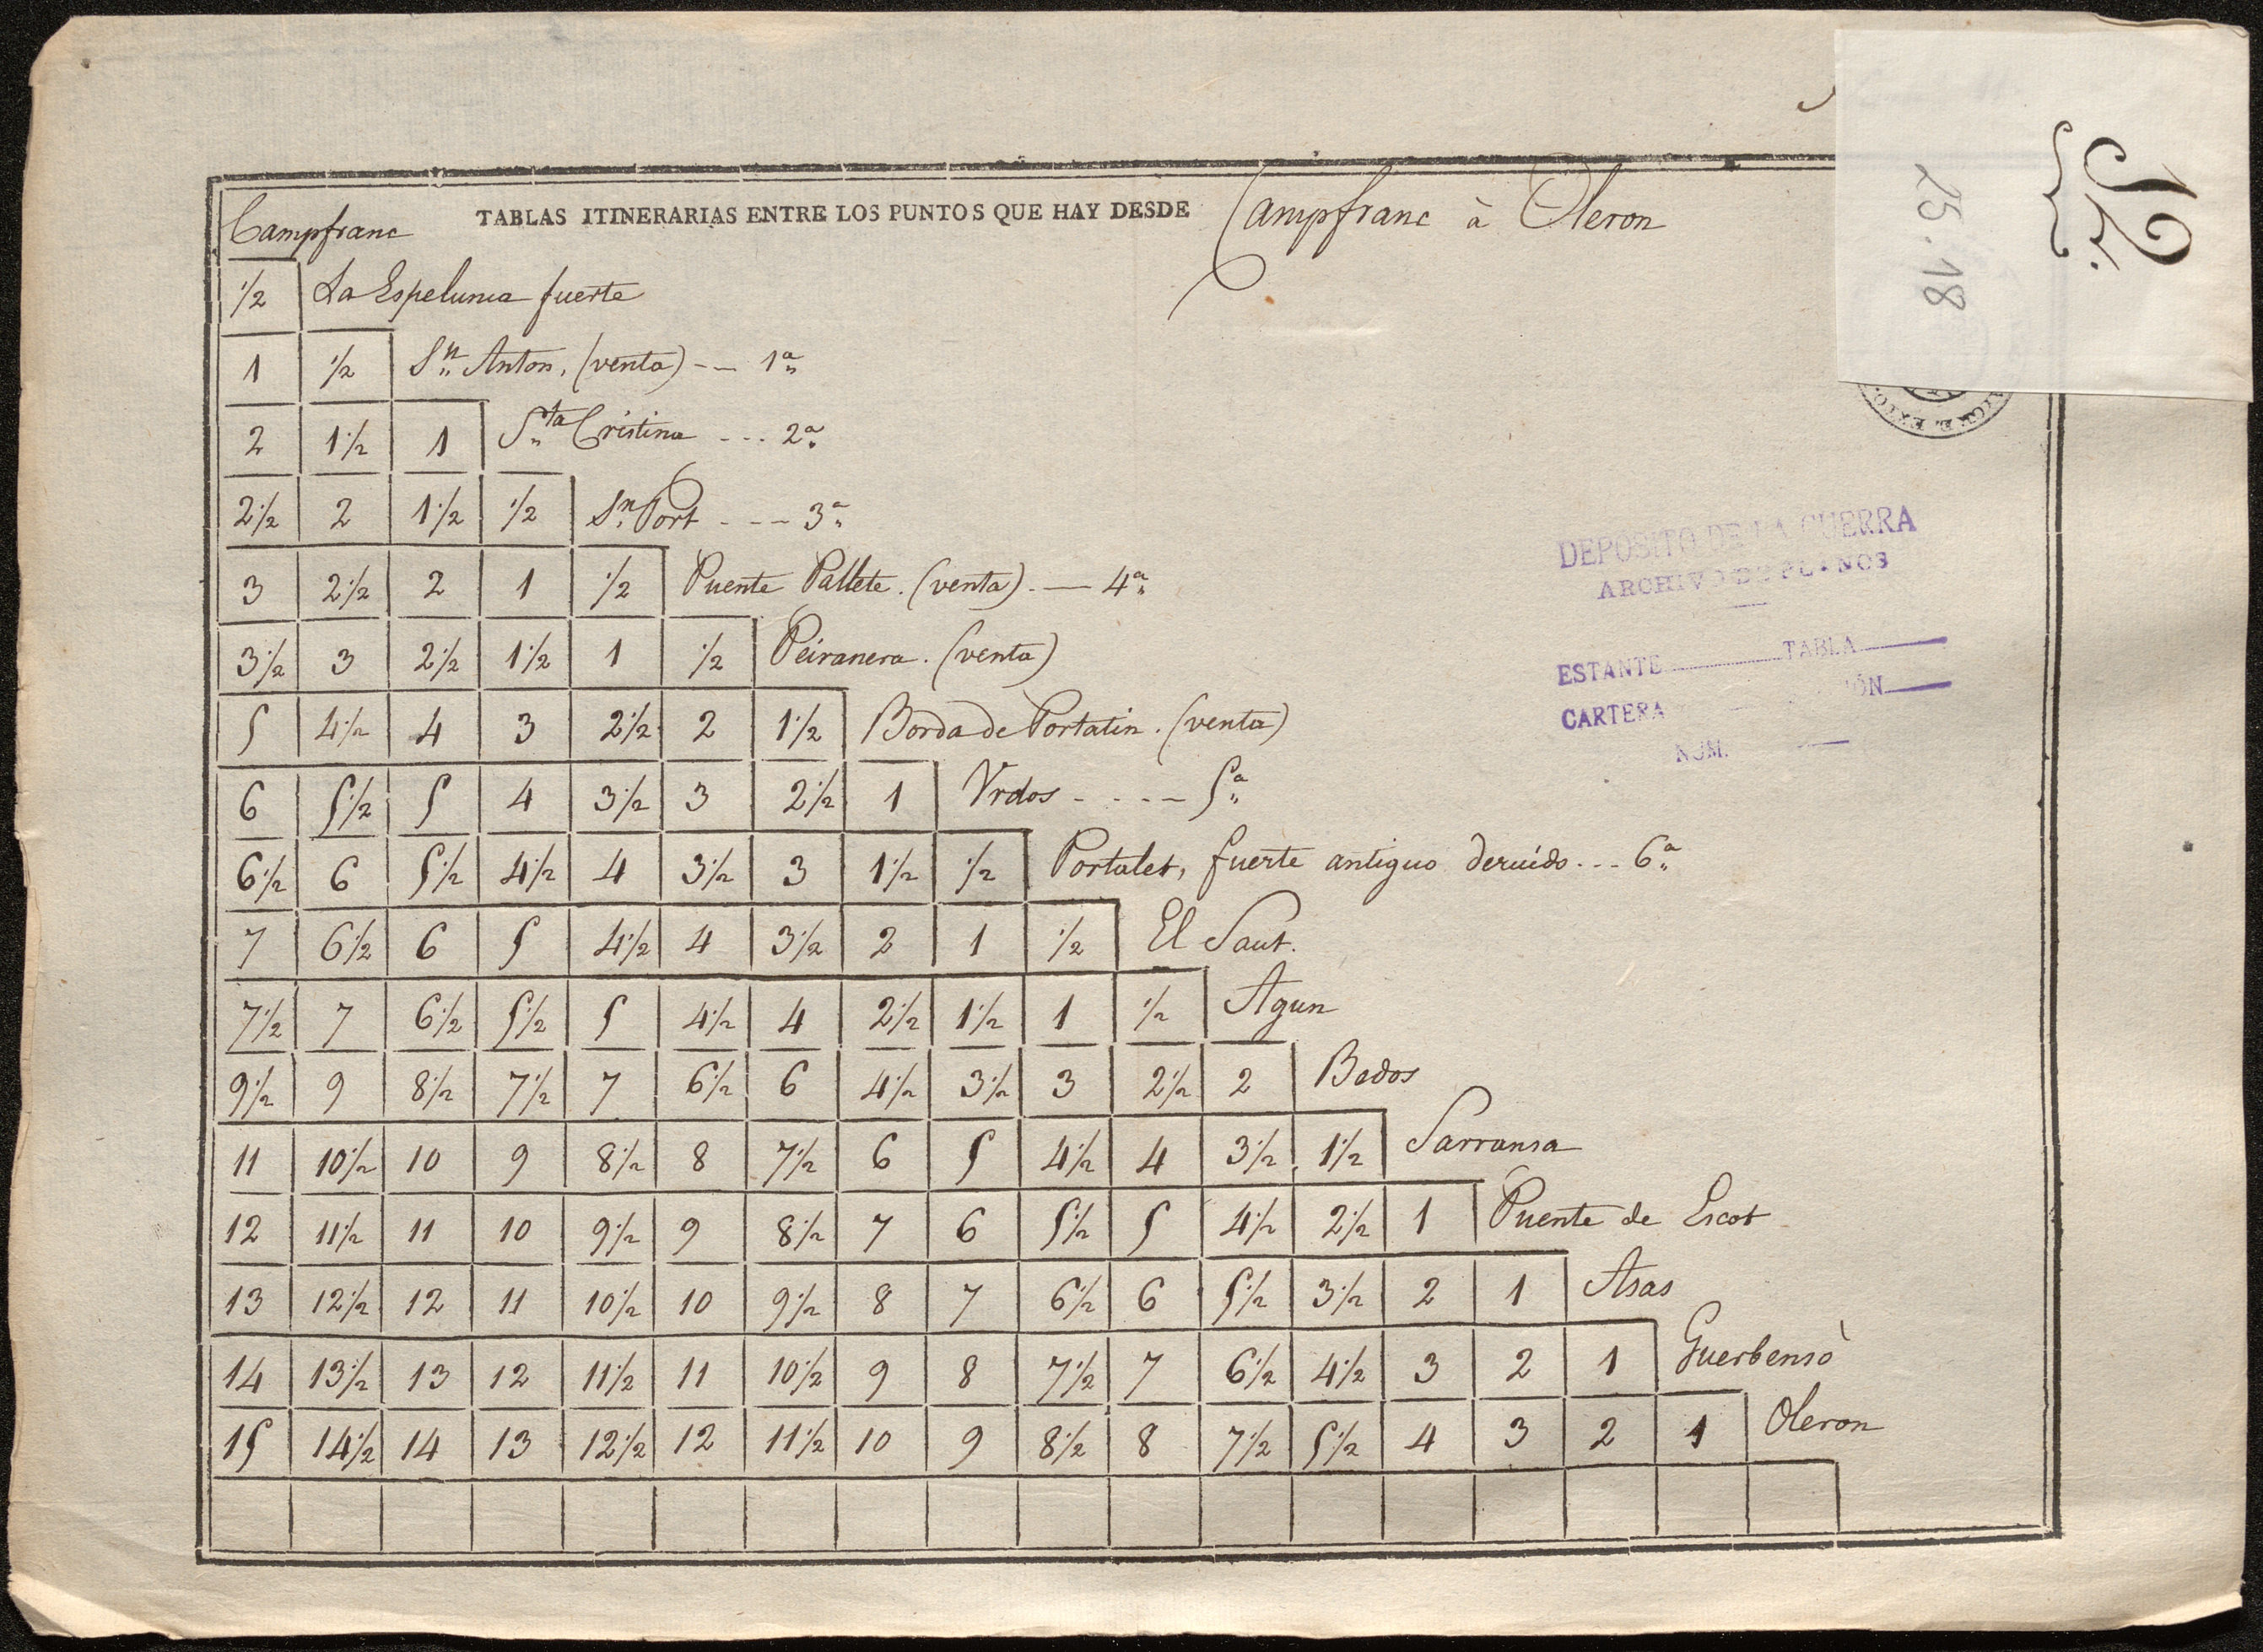 TABLAS ITINERARIAS ENTRE LOS PUNTOS QUE HAY DESDE Campfranc à Oleron
12.
25.18
Campfranc
1/2 La Espelunca fuerte
1 1/2 Sn. Anton. (venta) -- 1ª
2 1 1/2 1 Sta. Cristina --- 2ª
2 1/2 2 1 1/2 1/2 Sn. Port --- 3ª
3 2 1/2 2 1 1/2 Puente Pallete. (venta). -- 4ª
3 1/2 3 2 1/2 1 1/2 1 1/2 Peiranera. (venta)
5 4 1/2 4 3 2 1/2 2 1 1/2 Borda de Portatin. (venta)
6 5 1/2 5 4 3 1/2 3 2 1/2 1 Vrdos ---- 5ª
6 1/2 6 5 1/2 4 1/2 4 3 1/2 3 1 1/2 1/2 Portalet, fuerte antiguo deruido --- 6ª
7 6 1/2 6 5 4 1/2 4 3 1/2 2 1 1/2 El Saut.
7 1/2 7 6 1/2 5 1/2 5 4 1/2 4 2 1/2 1 1/2 1 1/2 Agun
9 1/2 9 8 1/2 7 1/2 7 6 1/2 6 4 1/2 3 1/2 3 2 1/2 2 Bedos
11 10 1/2 10 9 8 1/2 8 7 1/2 6 5 4 1/2 4 3 1/2 1 1/2 Sarransa
12 11 1/2 11 10 9 1/2 9 8 1/2 7 6 5 1/2 5 4 1/2 2 1/2 1 Puente de Escot
13 12 1/2 12 11 10 1/2 10 9 1/2 8 7 6 1/2 6 5 1/2 3 1/2 2 1 Asas
14 13 1/2 13 12 11 1/2 11 10 1/2 9 8 7 1/2 7 6 1/2 4 1/2 3 2 1 Guerbensò
15 14 1/2 14 13 12 1/2 12 11 1/2 10 9 8 1/2 8 7 1/2 5 1/2 4 3 2 1 Oleron
DEPOSITO DE LA GUERRA
ARCHIVO DE PLANOS
ESTANTE TABLA
CARTERA
NUM.